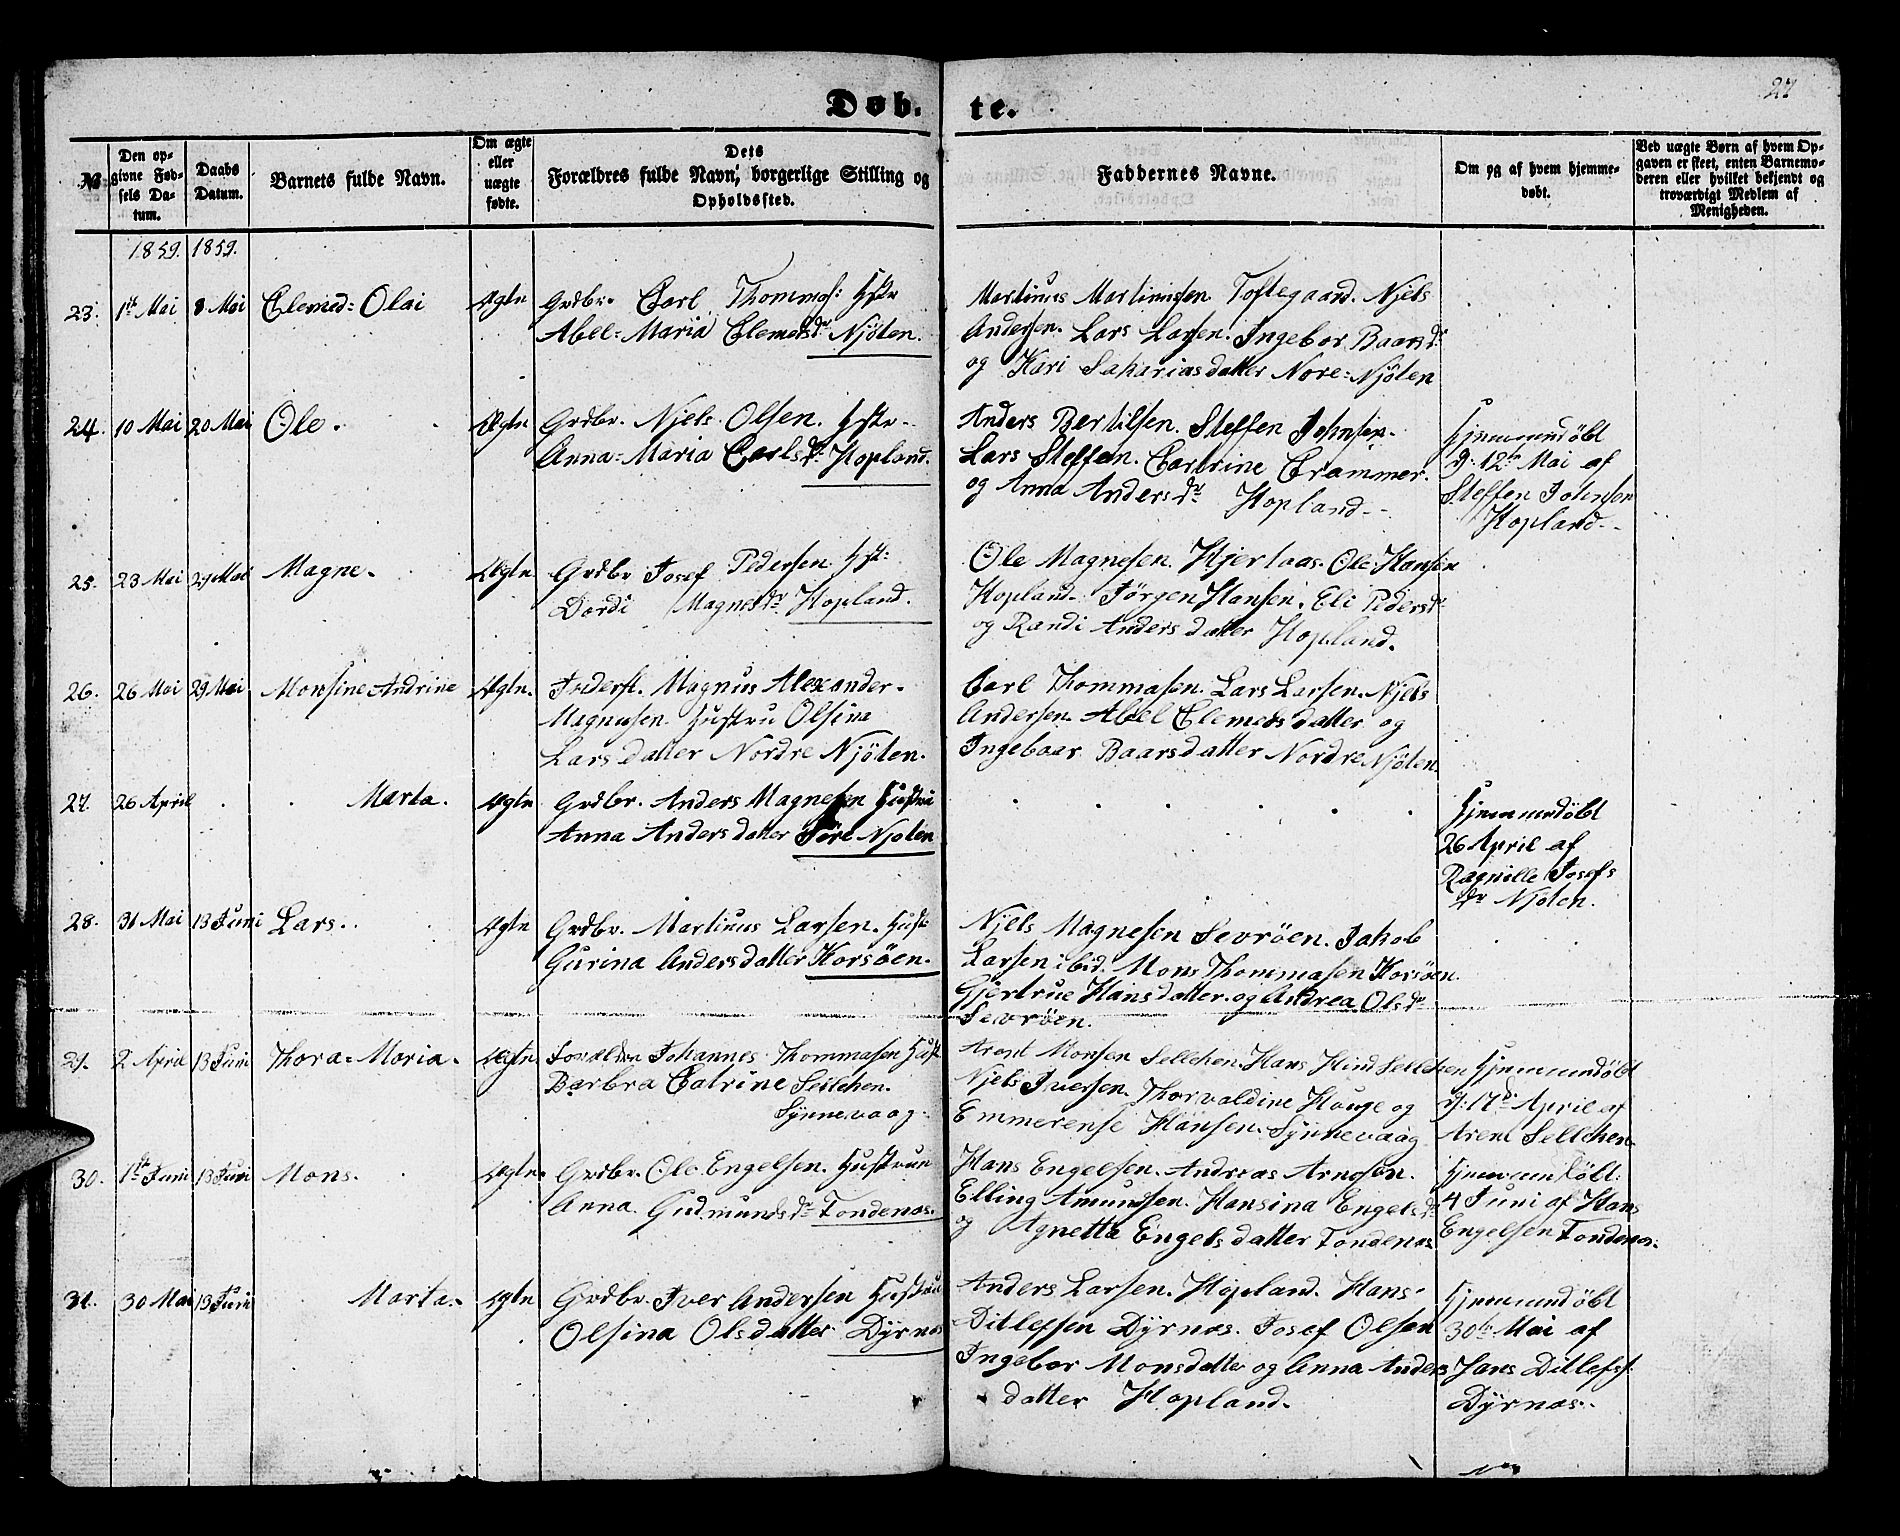 27
Døb-
te.
№
Den op-
givne Fød-
sels Da-
tum.
Daabs
Datum.
Barnets fulde Navn.
Om ægte
eller
uægte
fødte.
Dets
Forældres fulde Navn, borgerlige Stilling og
Opholdssted.
Faddernes Navne.
Om og af hvem hjemme-
døbt.
Ved uægte Børn af hvem Op-
gaven er skeet, enten Barnemo-
deren eller hvilket bekjendt og
troværdigt Medlem af
Menigheden.
1859. 1859.
23. 1ste Mai 8 Mai Clemed= Olai Ægte Grdbr. Carl Thommas: Hstr
Abel= Maria Clemetsdr Njöten.
Martinus Martinusen Toftegaard. Njels
Andersen. Lars Larsen. Ingebor Baarsdr
og Kari Sakariasdatter Nore= Njöten
24. 10 Mai 20 Mai Ole. Ægte Grdbr. Njels Olsen. Hstr.
Anna= Maria Carlsdr Hopland.
Anders Bertilsen. Steffen Johnsen.
Lars Steffen. Cartrine Crammer.
og Anna Andersdr Hopland.
Hjemmedöbt
d: 12te Mai af
Steffen Johnsen
Hopland.
25. 23 Mai 29 Mai Magne. Ægte Grdbr Josef Pedersen Hst:
Dordi Magnesdr Hopland.
Ole Magnesen. Hjertaas. Ole Hansen
Hopland. Jörgen Hansen. Eli Pedersdr
og Randi Andersdatter Hopland.
26. 26 Mai 29 Mai Monsine Andrine Ægte. Inderst. Magnus Alexander.
Magnusen Hustru Olsina
Larsdatter Nordre Njöten.
Carl Thommasen. Lars Larsen. Njels
Andersen. Abel Clemetsdatter og
Ingeboar Baarsdatter Nordre Njöten.
27. 26 April Marta. Ægte Grdbr. Anders Magnesen Hustru
Anna Andersdatter Söre Njöten
Hjemmedöbt
26 April af
Ragnille Josefs
dr Njöten.
28. 31 Mai 13 Juni Lars. Ægte Grdbr. Martinus Larsen. Hust:
Gurina Andersdatter Korsöen.
Njels Magnesen Sevröen. Jakob
Larsen ibid. Mons Thommasen Korsöen.
Gjertrue Hansdatter. og Andrea Olsdr
Sevröen.
29. 2 April 13 Juni Thora= Maria. Ægte Forældre Johannes Thommasen Hust
Barbra Catrine Sellehen.
Synnevaag.
Arent Monsen Sellehen. Hans Hind Sellehen
Njels Iversen. Thorvaldine Hauge og
Emmerense Hansen. Synnevaag
Hjemmedöbt
d: 17de April af
Arent Sellehen
30. 1ste Juni 13 Juni Mons. Ægte. Grdbr. Ole Engelsen. Hustrun
Anna. Gudmundsdr Tondenæs.
Hans Engelsen. Andreas Arnesen.
Elling Amundsen. Hansina Engelsdr
og Agnetta Engelsdatter Tondenæs
Hjemmedöbt:
4 Juni af Hans
Engelsen Tondenæs.
31. 30 Mai 13 Juni Marta. Ægte Grdbr. Iver Andersen Hustru
Olsina Olsdatter Dyrnæs
Anders Larsen. Hopland. Hans
Ditlefsen Dyrnæs. Josef Olsen
Ingebor Monsdatter og Anna Anders
datter Hopland.
Hjemmedöbt
30te Mai af
Hans Ditlefs:
Dyrnæs.